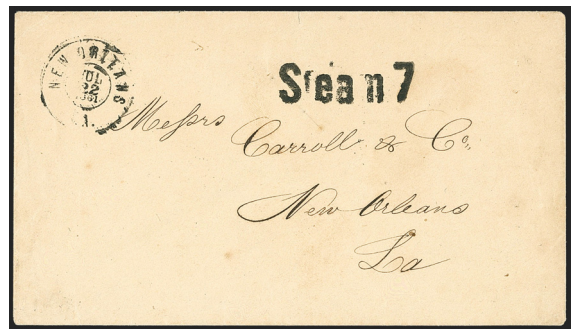 NEW ORLEANS
JUL
22
1861
Steam 7
Messrs
Carroll & Co.,
New Orleans
La